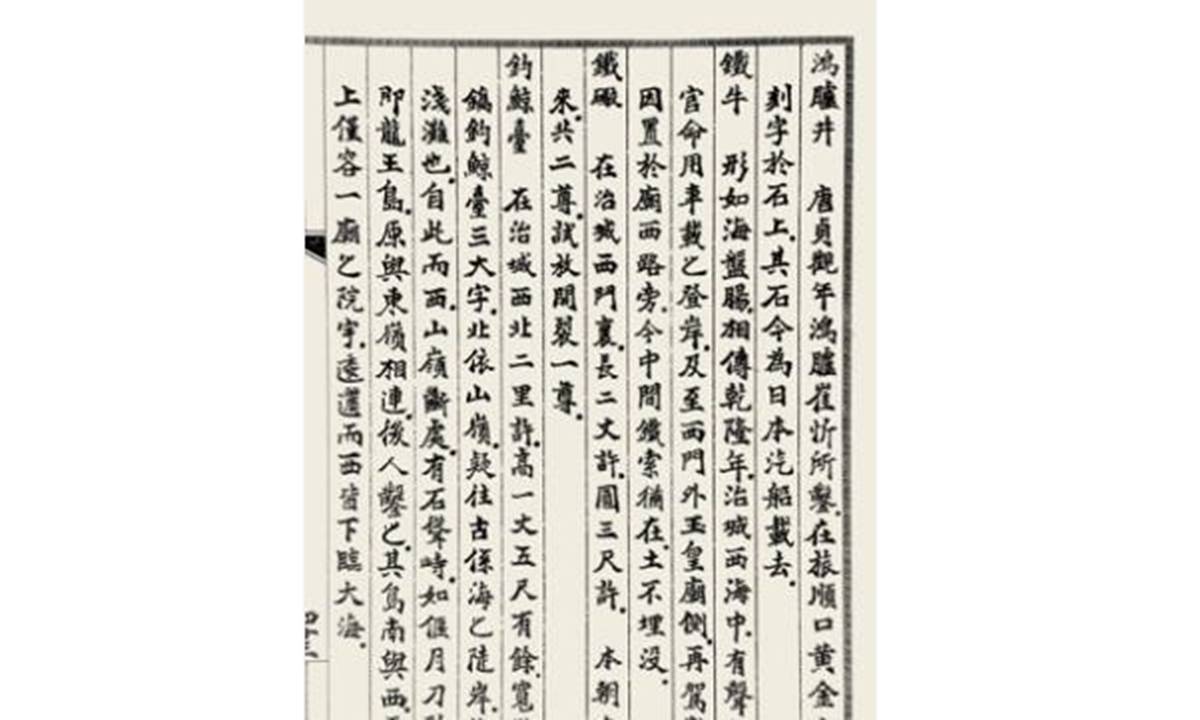 鴻臚井　唐貞觀年鴻臚崔忻所鑿.在旅順口黄金
刻字於石上.其石今為日本汽船載去.
鐵牛　形如海盤腸.相傳乾隆年.治城西海中.有聲
官命用車載之登岸.及至西門外玉皇廟側.再駕
因置於廟西路旁.今中間鐵索猶在.土不埋没.
鐵礮　在治城西門裏.長二丈許.圓三尺許.　本朝
來.共二尊.試放開裂一尊.
釣鯨臺　在治城西北二里許.高一丈五尺有餘.寬
鐫釣鯨臺三大字.北依山嶺.疑往古係海之陡岸.
淺灘也.自此而西.山嶺斷處.有石聳峙.如偃月刀
即龍王島.原與東嶺相連.後人鑿之.其島南與西
上僅容一廟之院宇.逶邐而西皆下臨大海.